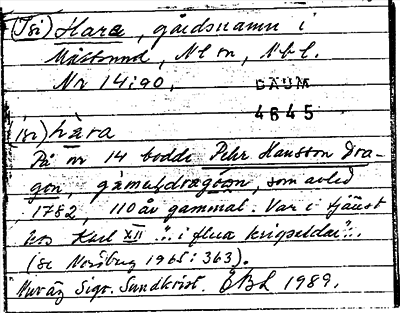 (Isi) Hara, gårdsnamn i
Måttsund, Nl sn, Nbl.
Nr 14:90.
DAUM
4645
(isi) hàra
På nr 14 bodde Pehr Hansson Dra-
gon, gámuldragóon, som avled
1782, 110 år gammal. Var i tjänst
hos Karl XII "i flera krigståtar".
(se Nordberg 1965:363).
Sigv. Sundkvist. ÖBL 1989.